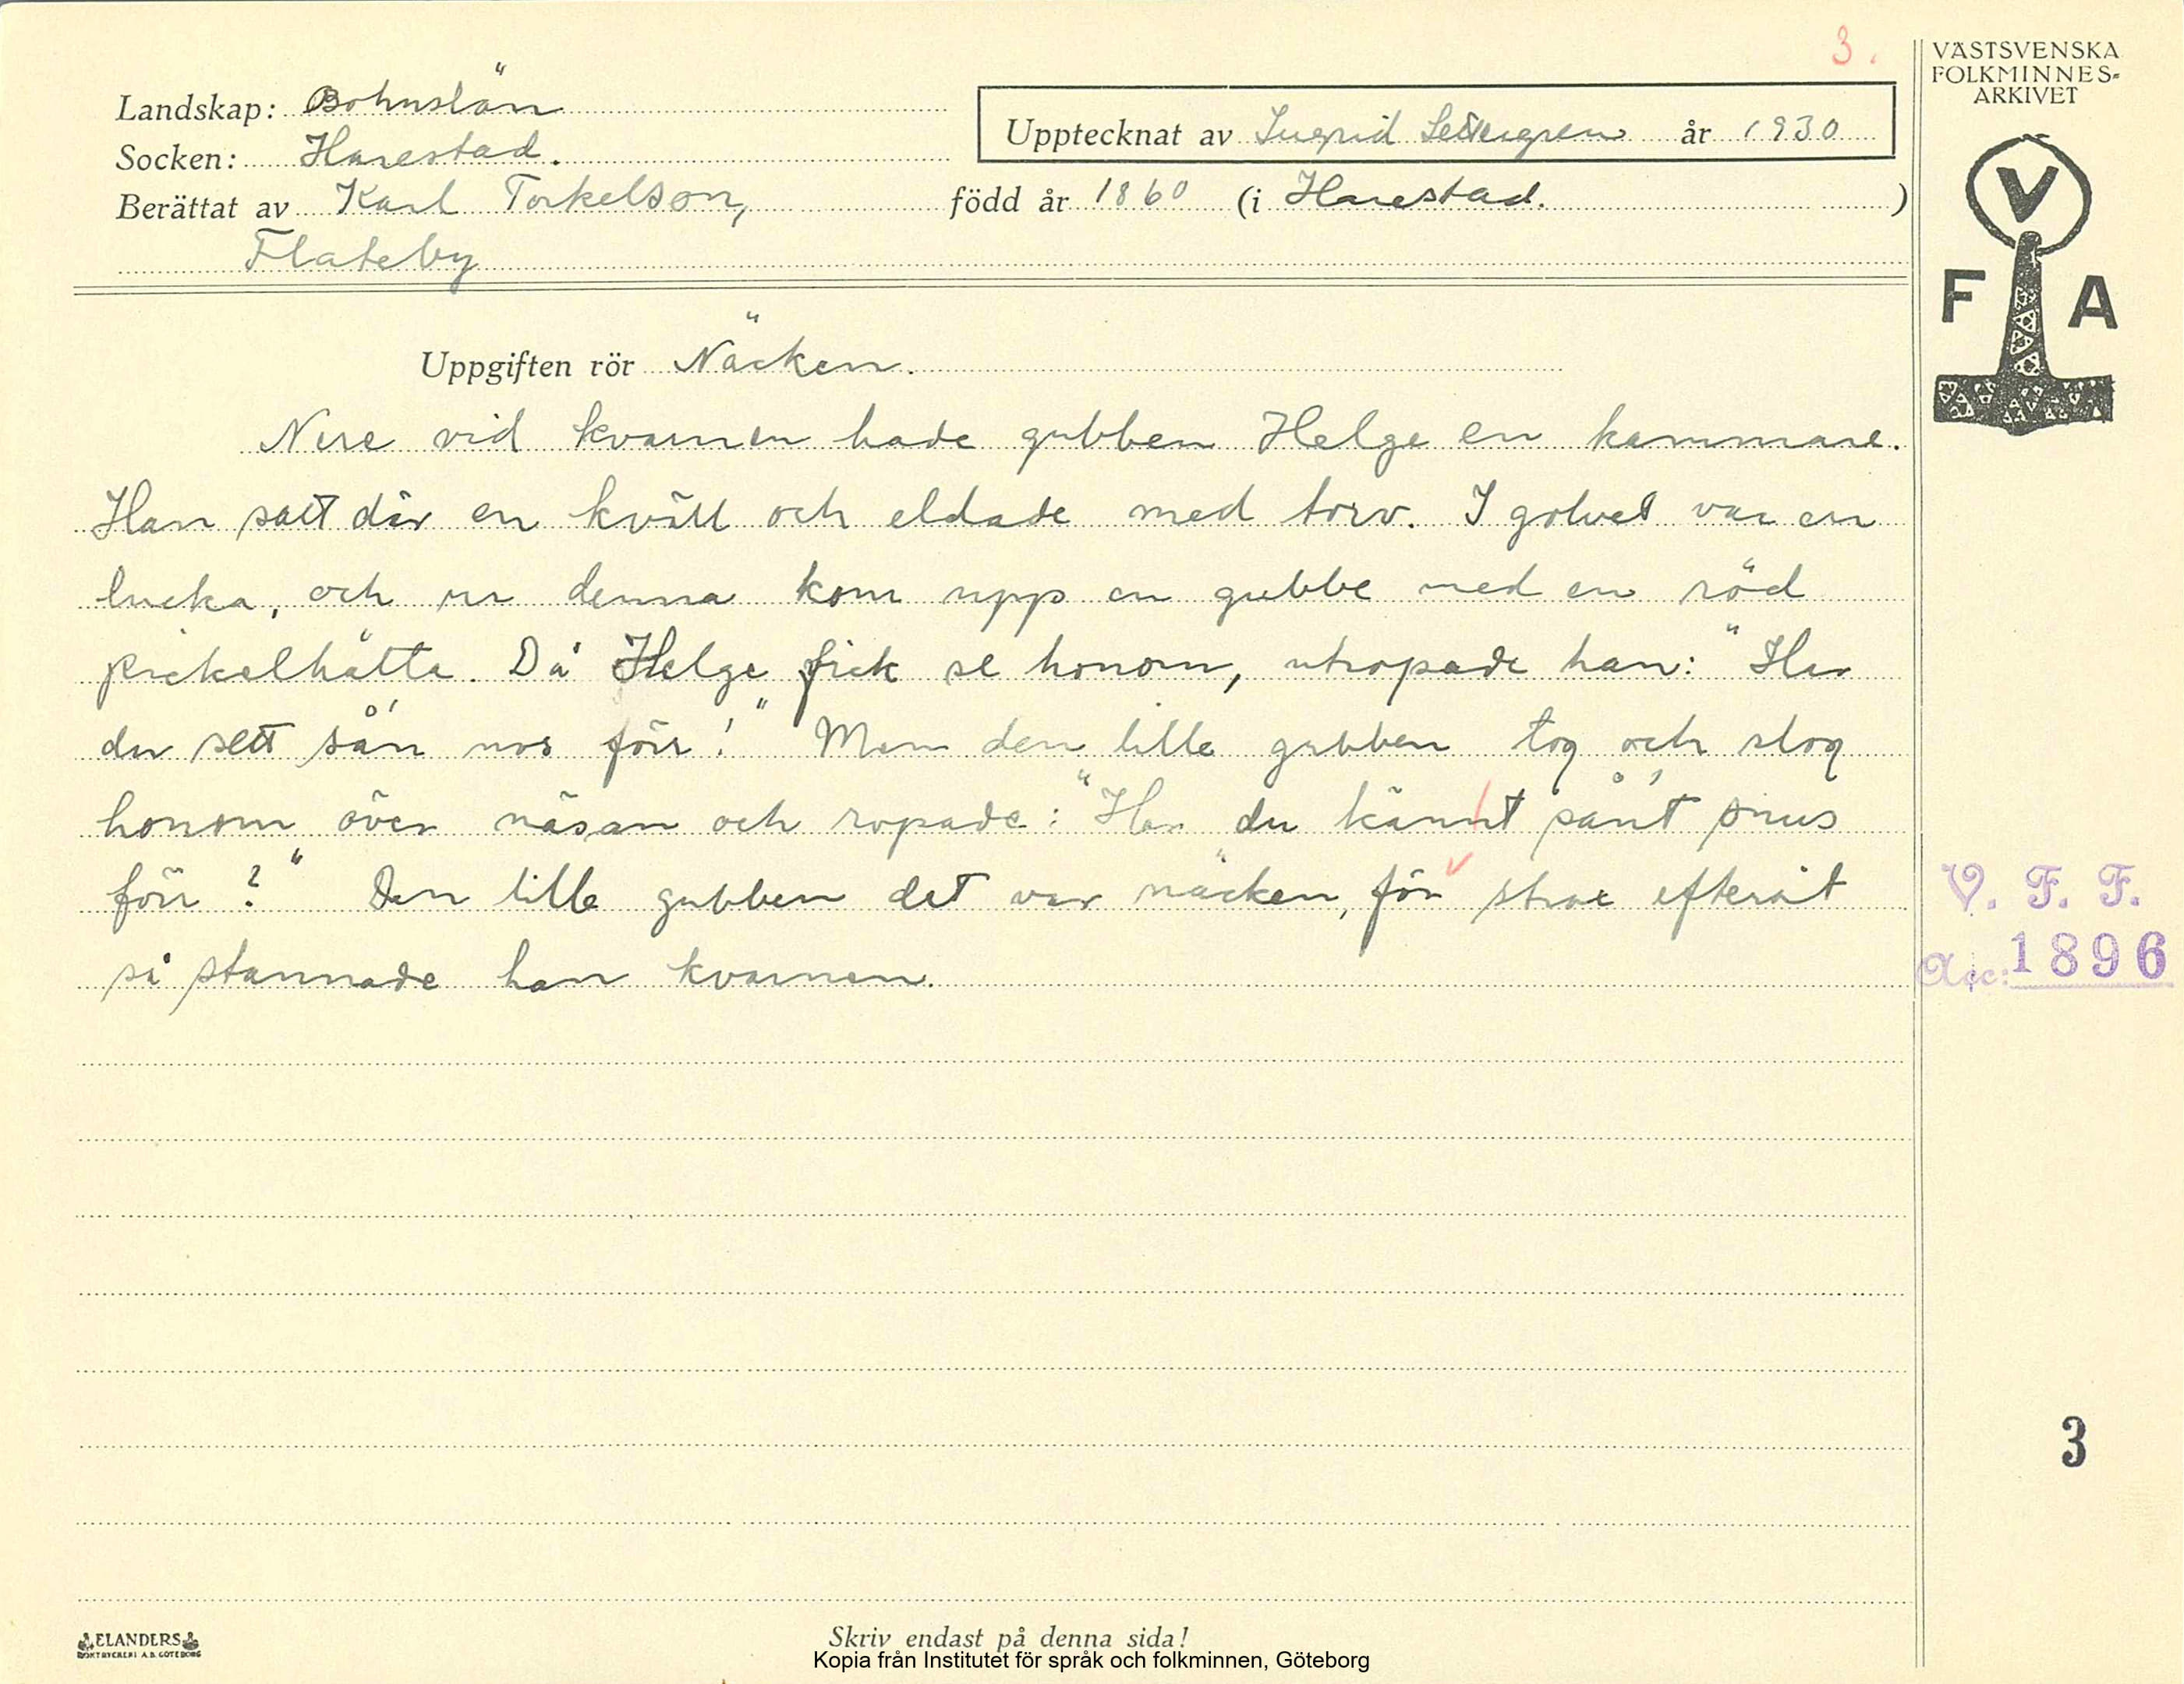 3.
VÄSTSVENSKA
FOLKMINNES-
ARKIVET
Landskap: Bohuslän
Upptecknat av Ingrid år 1930
Socken: Harestad.
Berättat av Karl Torkelson, född år 1860 (i Harestad. )
Flateby
V
F A
Uppgiften rör Näcken.
Nere vid kvarnen hade gubben Helge en kammare.
Han satt där en kväll och eldade med torv. I golvet var en
lucka, och ur denna kom upp en gubbe med en röd
pickelhätta. Då Helge fick se honom, utropade han: "Har
du sett sån nos förr!" Men den lille gubben tog och slog
honom över näsan och ropade: "Har du kännt sånt snus
förr?" Den lille gubben det var näcken, för strax efteråt
så stannade han kvarnen.
V. F. F.
Acc: 1896
3
ELANDERS
BOKTRYCKERI A.B. GÖTEBORG
Skriv endast på denna sida!
Kopia från Institutet för språk och folkminnen, Göteborg